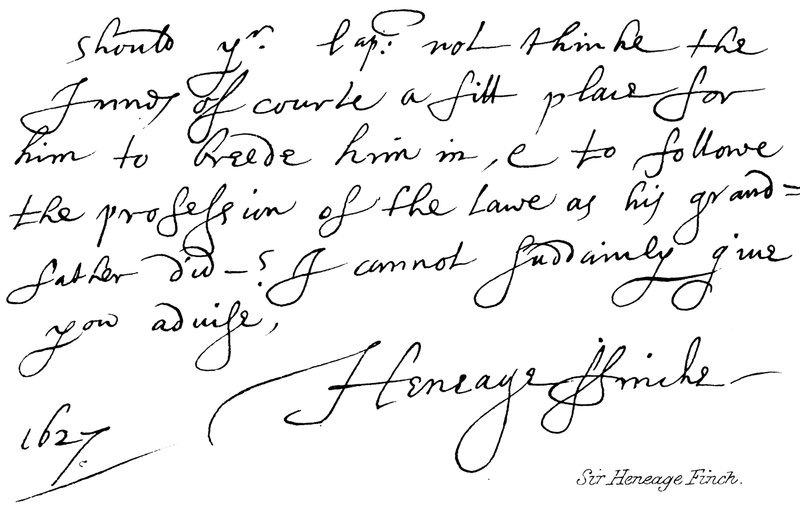 should yr. Lap: not thinke the
Innes of courte a fitt place for
him to breede him in, & to followe
the profession of the Lawe as his grand=
father did—? I cannot suddainly giue
you aduise,
Heneage ffinche
1627
Sir Heneage Finch.